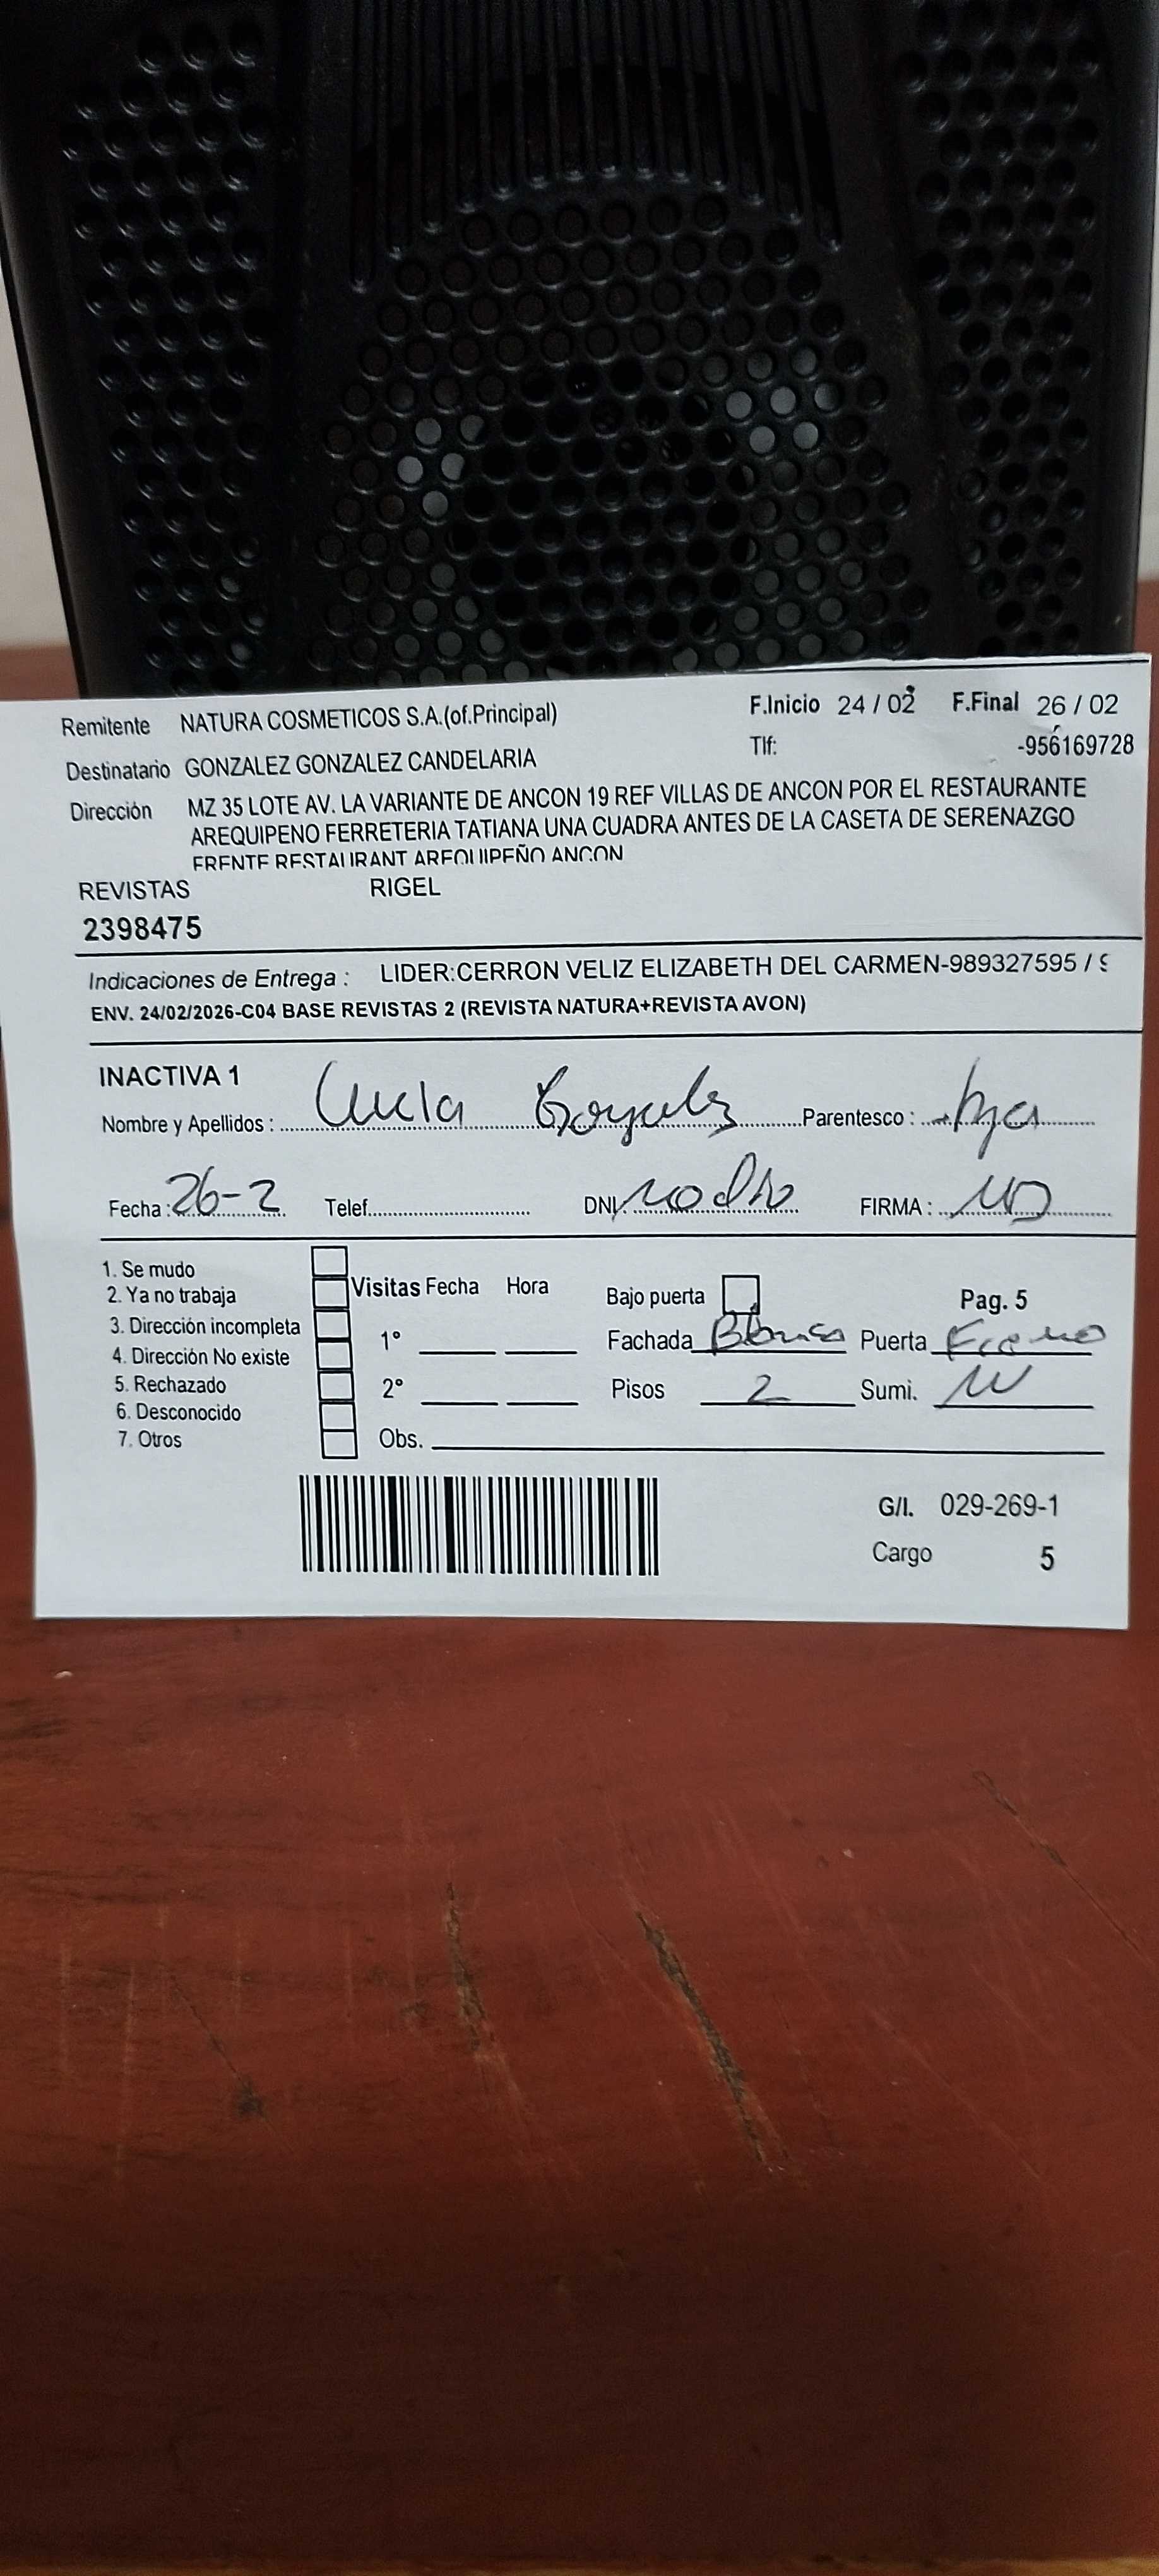 Remitente NATURA COSMETICOS S.A.(of.Principal) F.Inicio 24 / 02 F.Final 26 / 02
Tlf: -956169728
Destinatario GONZALEZ GONZALEZ CANDELARIA
Dirección MZ 35 LOTE AV. LA VARIANTE DE ANCON 19 REF VILLAS DE ANCON POR EL RESTAURANTE
AREQUIPENO FERRETERIA TATIANA UNA CUADRA ANTES DE LA CASETA DE SERENAZGO
FRENTE RESTAURANT AREQUIPEÑO ANCON
REVISTAS RIGEL
2398475
Indicaciones de Entrega : LIDER:CERRON VELIZ ELIZABETH DEL CARMEN-989327595 / 9
ENV. 24/02/2026-C04 BASE REVISTAS 2 (REVISTA NATURA+REVISTA AVON)
INACTIVA 1
Nombre y Apellidos : Parentesco :
Fecha : 26-2 Telef. DNI. FIRMA :
1. Se mudo
2. Ya no trabaja Visitas Fecha Hora Bajo puerta Pag. 5
3. Dirección incompleta 1° Fachada Blanca Puerta
4. Dirección No existe
5. Rechazado 2° Pisos 2 Sumi.
6. Desconocido
7. Otros Obs.
G/I. 029-269-1
Cargo 5